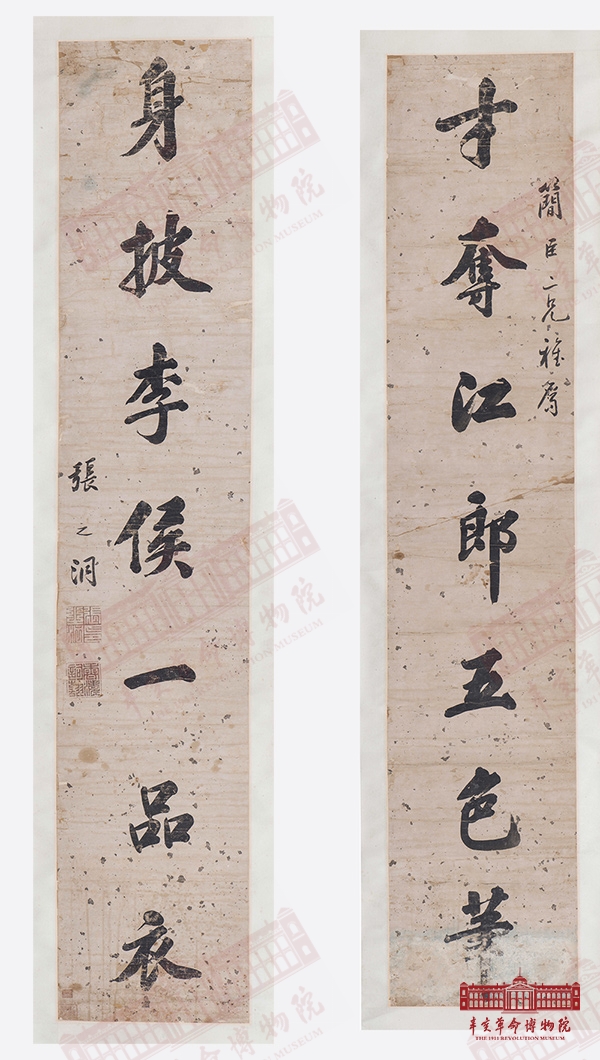 簡臣二兄雅屬
才奪江郎五色筆
身披李侯一品衣
張之洞
辛亥革命博物院
THE 1911 REVOLUTION MUSEUM